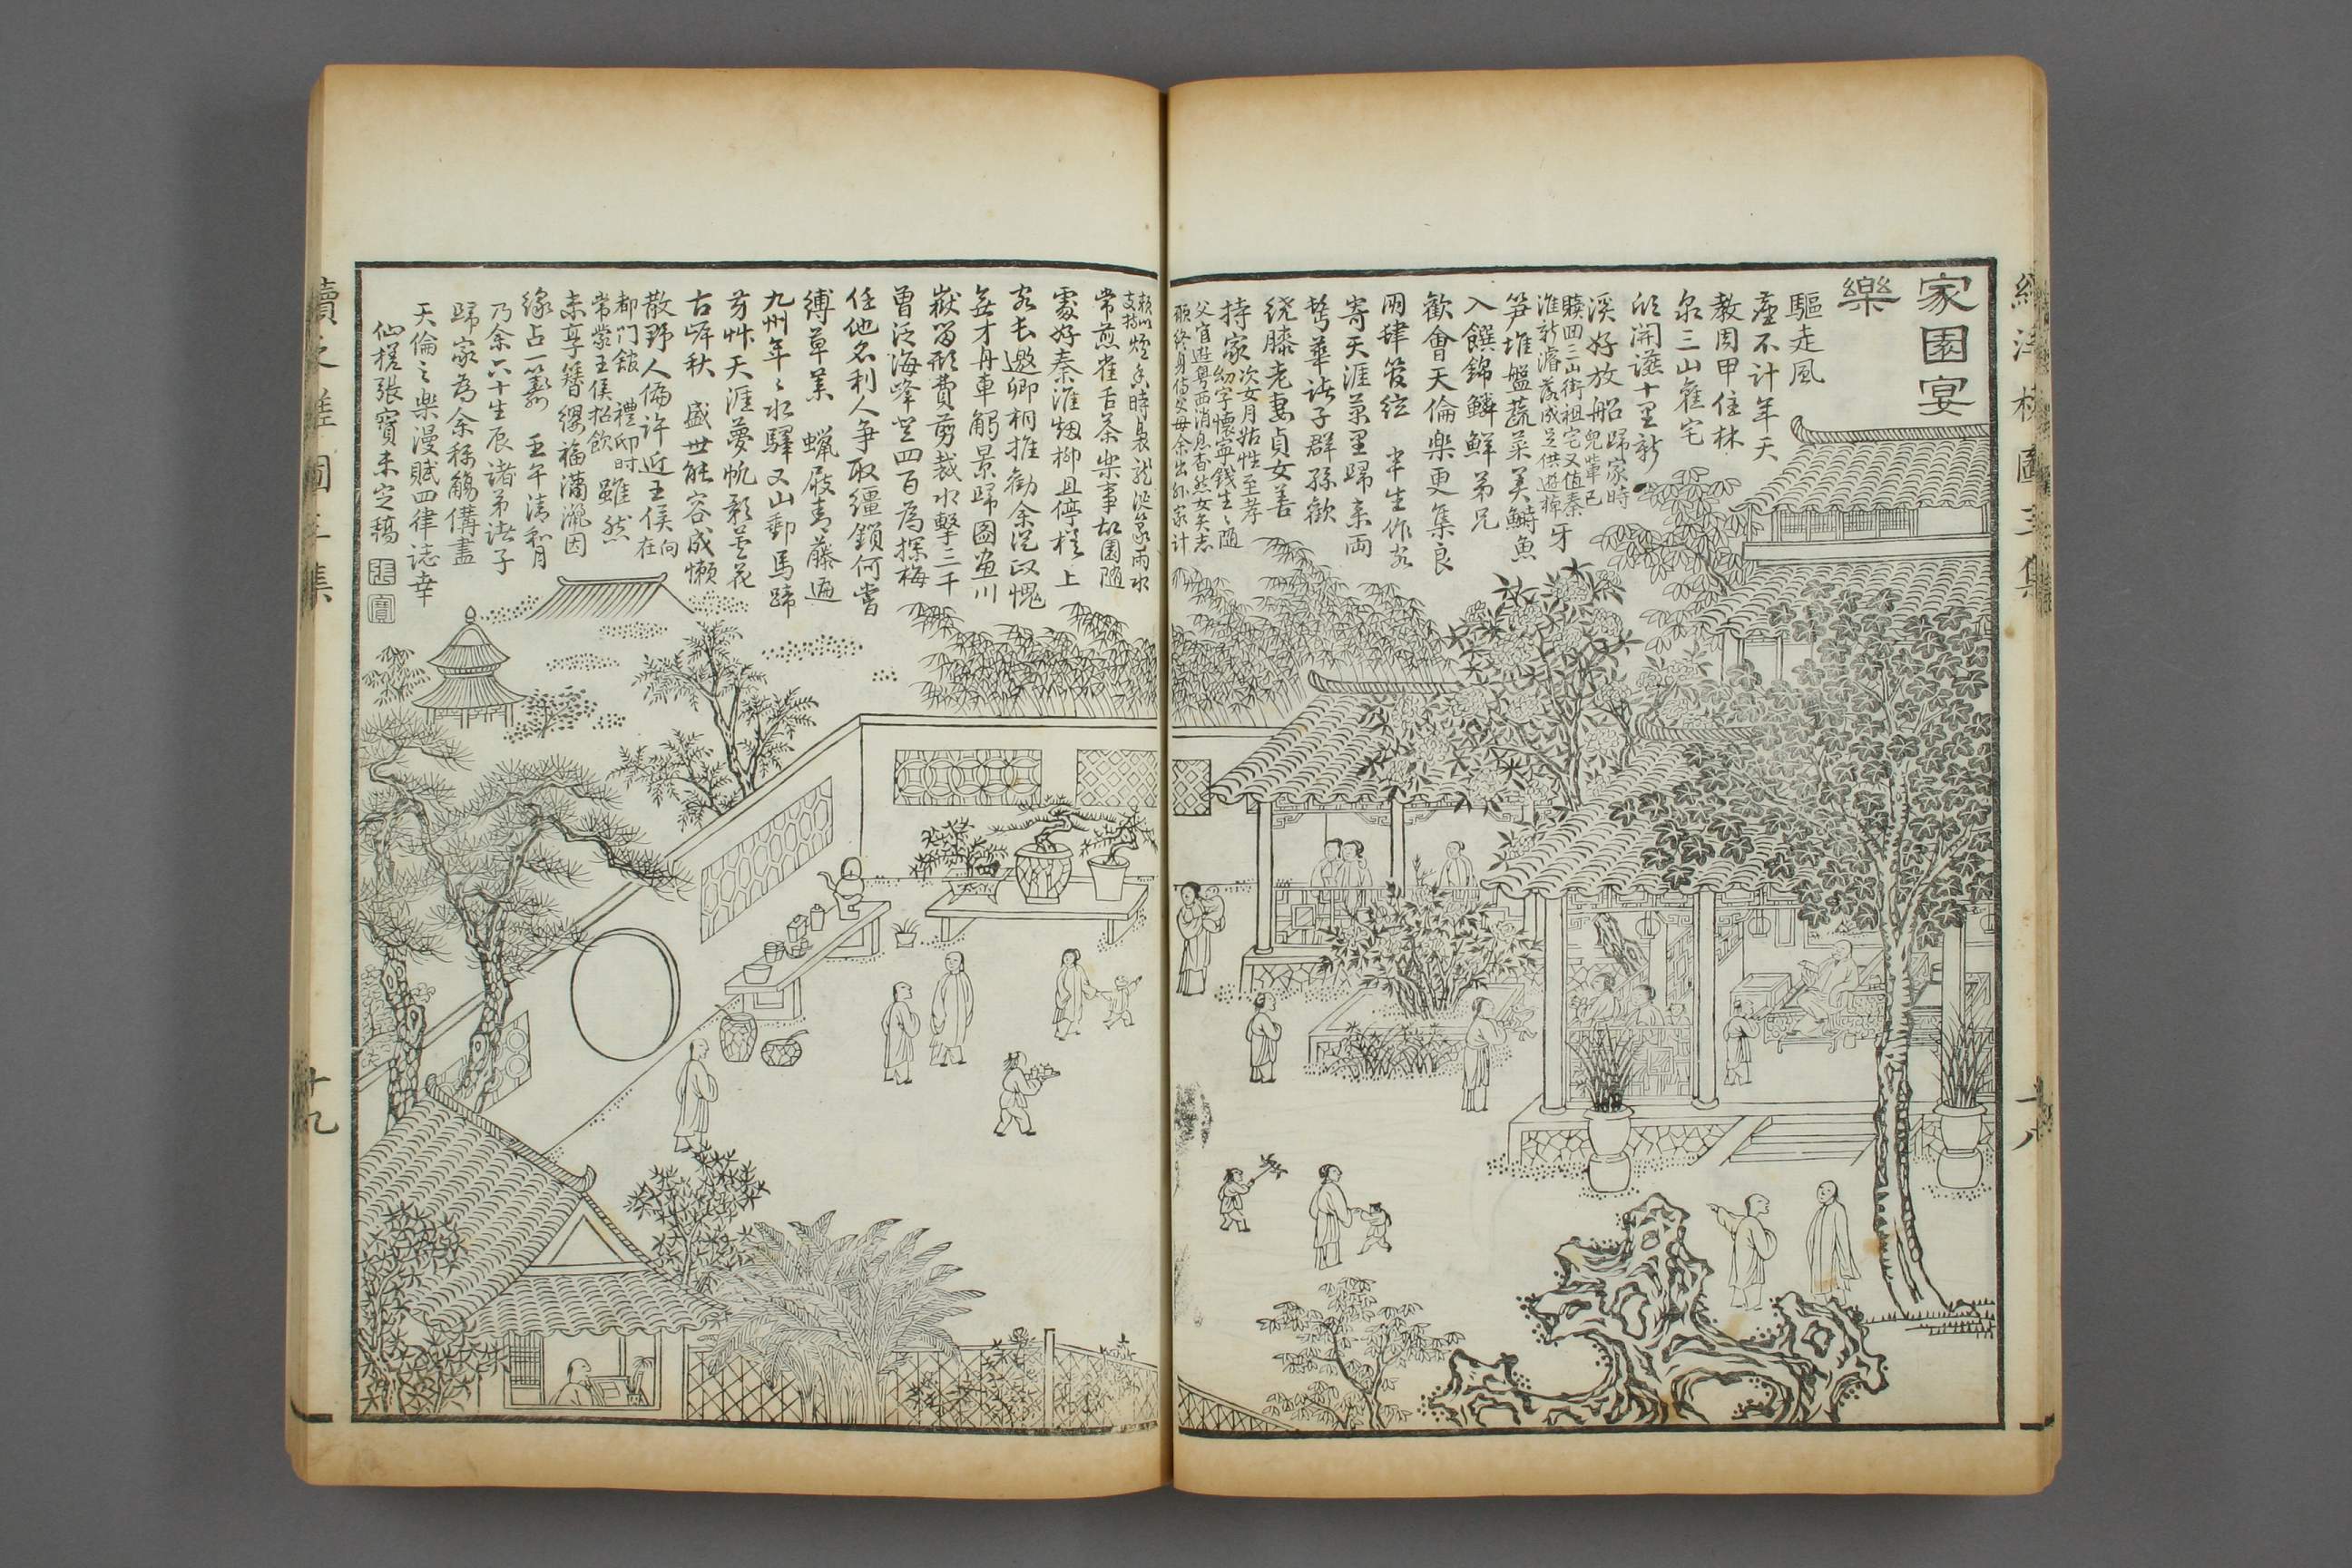 家園宴
樂
驅走風
塵不計年天
教周甲住林
泉三山舊宅
欣開讌十里新
溪好放船歸家時兒輩已
贖回三山街祖宅又值秦
淮新濬落成足供遊棹牙
笋堆盤蔬菜美鰣魚
入饌錦鱗鮮 弟兄
歡會天倫樂更集良
朋肆筵 半生作客
寄天涯萬里歸來兩
鬢華諸子群孫歡
繞膝老妻貞女善
持家次女月姑性至孝
幼字懷寧錢生生隨
父官遊粵西消息杳然女矢志
終身侍父母余出外家計
賴以支持
常煎雀舌茶樂事故園隨
處好秦淮烟柳且停槎 上
客去邀卿相推勸余從政愧
無才舟車觴景歸圖畫川
嶽留形費剪裁水擊三千
曾泛海峰登四百為探梅
任他名利人爭取韁鎖何嘗
縛草萊 蠟屐青藤遍
九州年年水驛又山郵馬蹄
芳艸天涯夢帆影蘆花
古岸秋 盛世能容成懶
散野人偏許近王侯向在
都門館禮邸時
常蒙王侯招飲雖然
未享簪纓福瀟灑因
緣占一籌 壬午清和月
乃余六十生辰諸弟諸子
歸家為余稱觴備盡
天倫之樂漫賦四律誌幸
仙槎張寶未定稿
張
寶
續泛槎圖三集
十八
十九